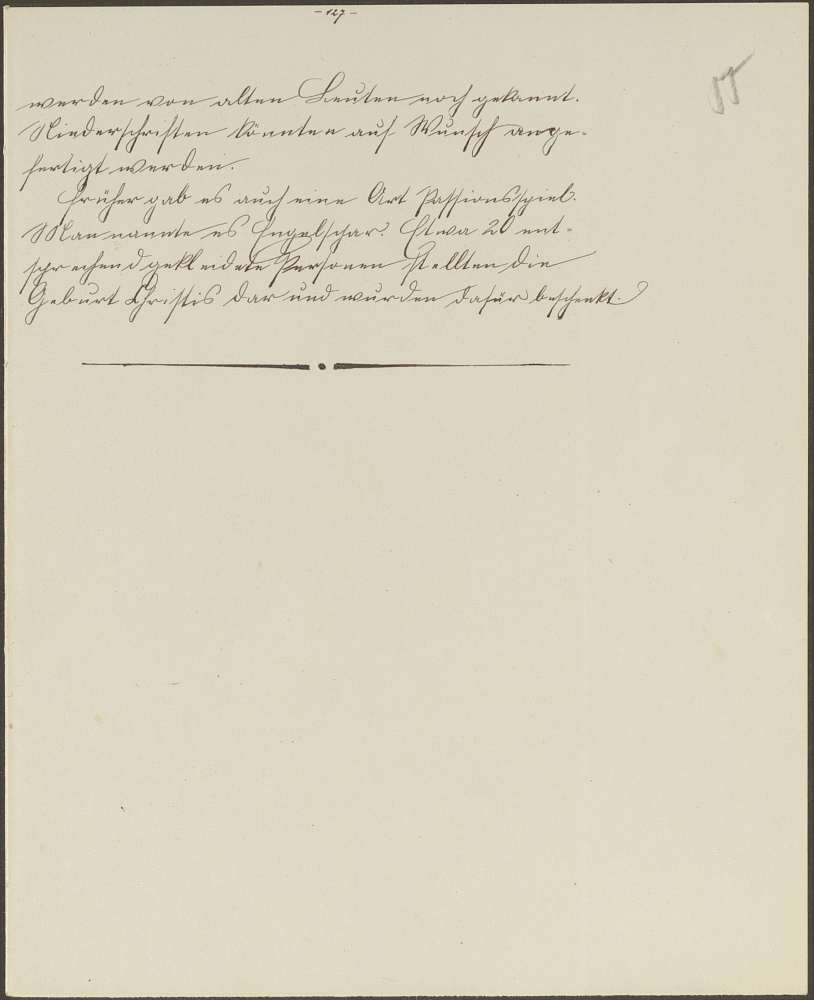 - 127 -
werden von alten Leuten noch gekannt.
Niederschriften könnten auf Wunsch ange-
fertigt werden.
Früher gab es auch eine Art Passionsspiel.
Man nannte es Engelschar. Etwa 20 ent-
sprechend gekleidete Personen stellten die
Geburt Christis dar und wurden dafür beschenkt.